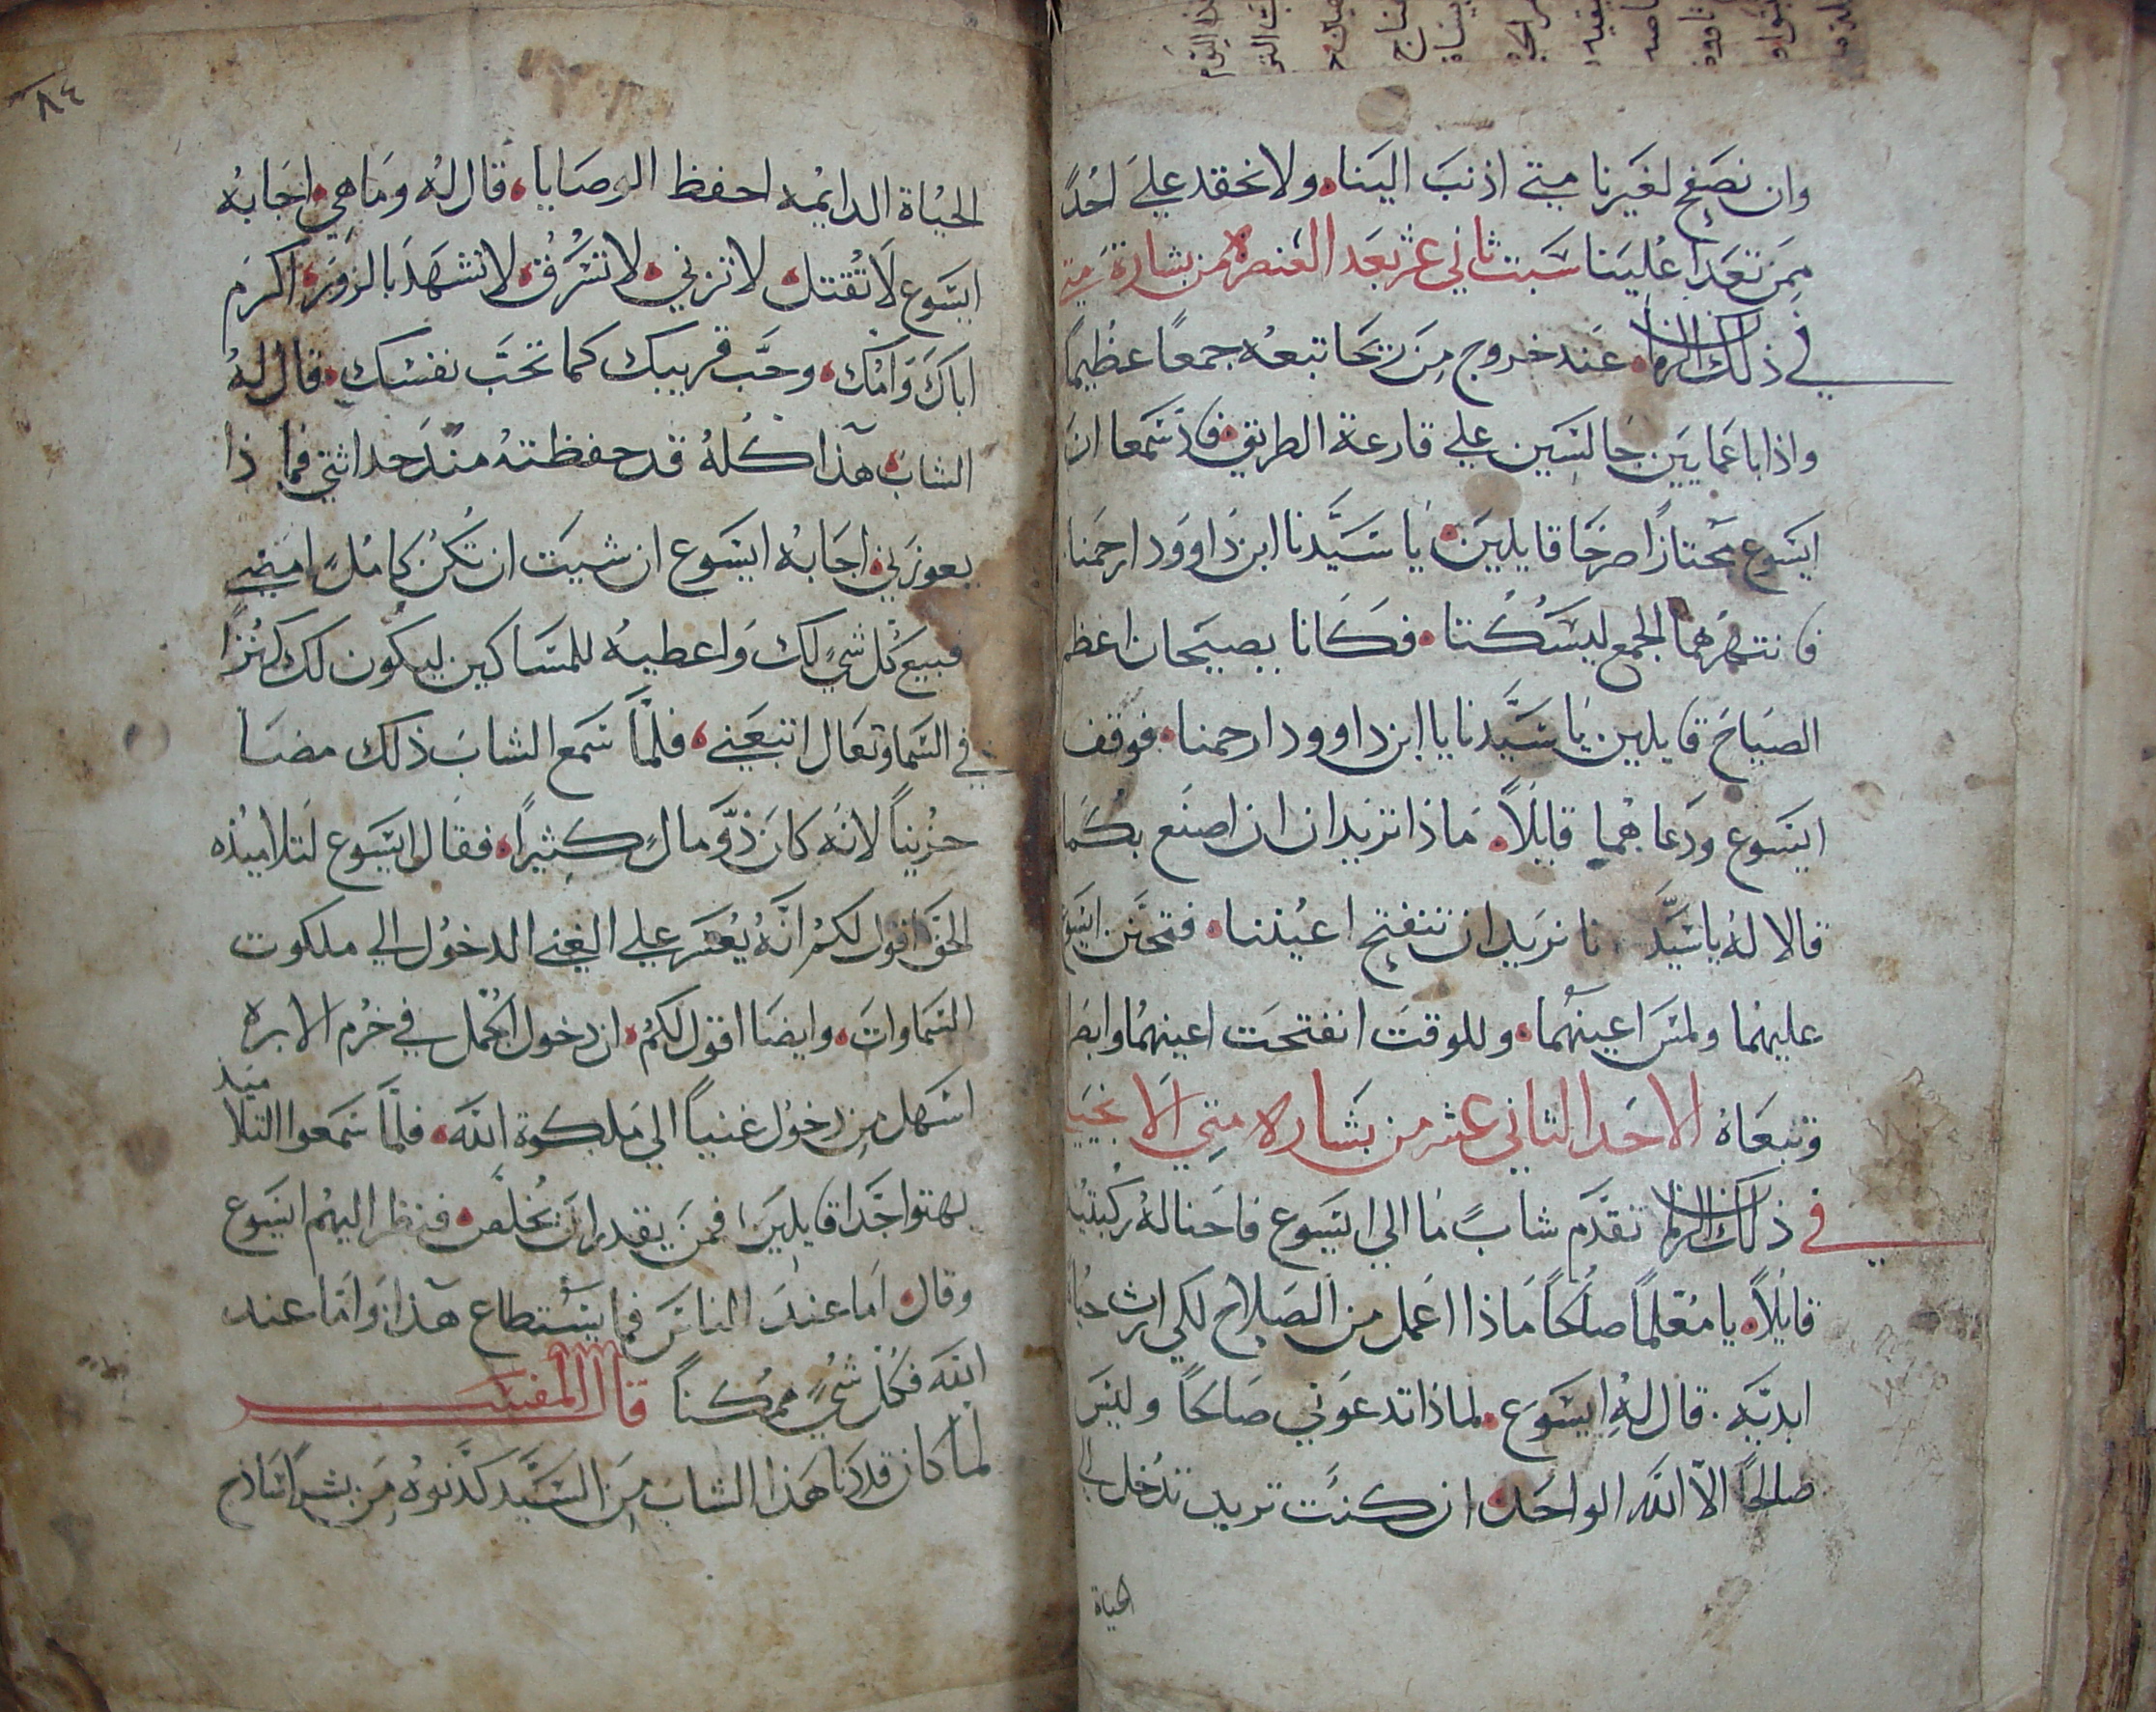 وان نصفح لغيرنا متي اذنب الينا ولا نحقد علي احدً
ممن تعدا علينا سبت ثاني عشر بعد العنصره من بشارة متي
في ذلك الزمان عند خروج من تبعه جمعاً عظيماً
واذا باعمايين جالسين علي قارعة الطريق فاذ سمعا ان
ايسوع مجتازاً صرخا قايلين يا سيدنا ابن داوود ارحمنا
فانتهرهما الجمع ليسكتا فكانا يصيحان اعظم
الصياح قايلين يا سيدنا يا ابن داوود ارحمنا فوقف
ايسوع ودعاهما قايلاً ماذا تريدان ان اصنع بكما
قالا له يا سيدنا نريد ان تنفتح اعيننا فتحنن ايسوع
عليهما ولمس اعينهما وللوقت انفتحت اعينهما وابصرا
وتبعاه الاحد الثاني عشر من بشاره متي الانجيلي
في ذلك الزمان تقدم شابً ما الي ايسوع فاحنا له ركبتيه
قايلاً يا معلماً صالحاً ماذا اعمل من الصلاح لكي ارث حياه
ابديه قال له ايسوع لماذا تدعوني صالحاً وليس
صالحاً الا الله الواحد ان كنت تريد تدخل الي
الحياة
٨٤
الحياة الدايمه احفظ الوصايا قال له وما هي اجابه
ايسوع لا تقتل لا تزني لا تسرق لا تشهد بالزور اكرم
اباك وامك وحب قريبك كما تحب نفسك قال له
الشاب هذا كله قد حفظته منذ حداثتي فما ذا
يعوزني اجابه ايسوع ان شيت ان تكن كاملٍ امضي
فبيع كل شيٍ لك واعطيه للمساكين ليكون لك كنزاً
في السما وتعال اتبعني فلما سمع الشاب ذلك مضا
حزيناً لانه كان ذو مالٍ كثيراً فقال ايسوع لتلاميذه
الحق اقول لكم انه يعسر علي الغني الدخول الي ملكوت
السماوات وايضا اقول لكم ان دخول الجمل في خرم الابره
اسهل من دخول غنياً الي ملكوة الله فلما سمعوا التلاميد
بهتوا جدا قايلين فمن يقدر ان يخلص فنظر اليهم ايسوع
وقال اما عند الناس فما يستطاع هذا واما عند
الله فكل شيٍ ممكناً قال المفسر
لما كان قد دنا هذا الشاب من السيد كدنوه من بشراً